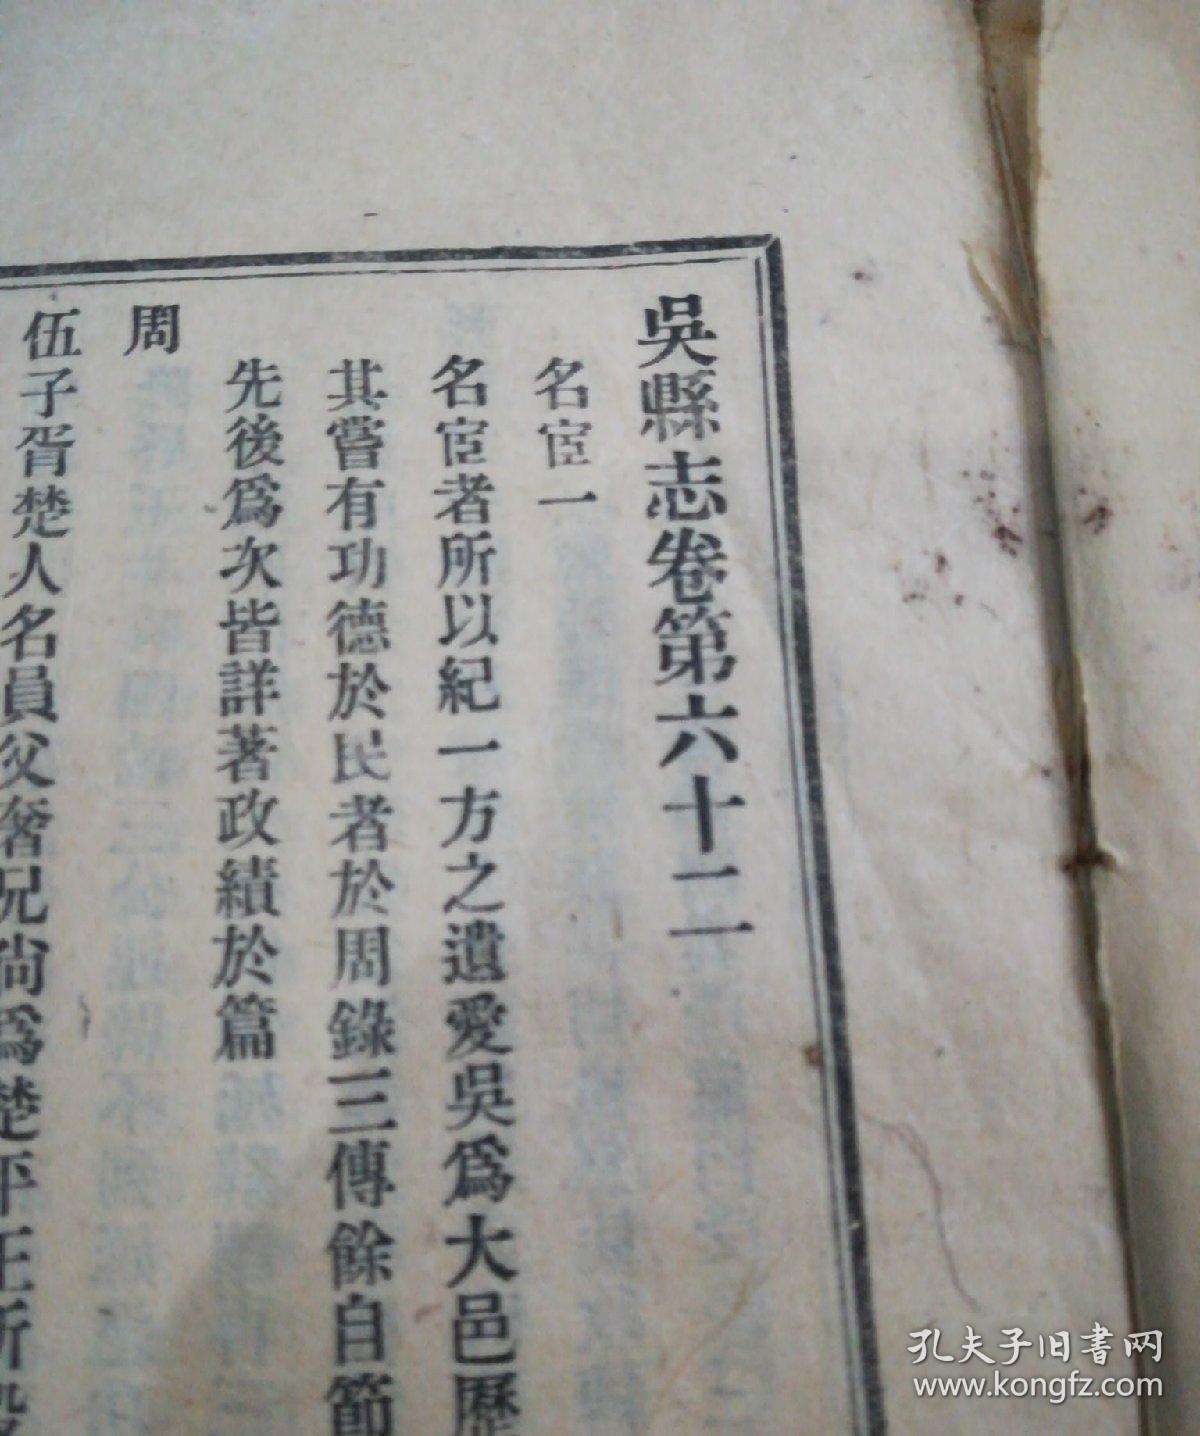 吳縣志卷第六十二
名宦一
名宦者所以紀一方之遺愛吳爲大邑歷
其嘗有功德於民者於周錄三傳餘自節
先後爲次皆詳著政績於篇
周
伍子胥楚人名員父奢兄尙爲楚平王所殺
孔夫子旧书网
www.kongfz.com